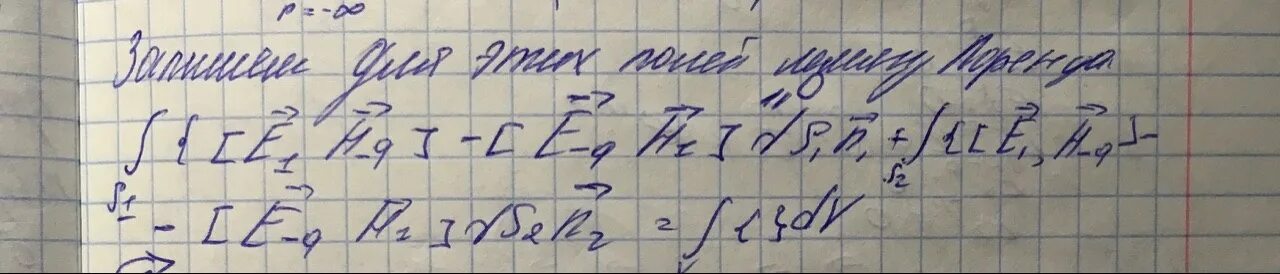 p = -∞
Запишем для этих полей лемму Лоренца
∫ { [ E⃗₁ H⃗₋q ] - [ E⃗₋q H⃗₁ ] } dS₁ n⃗₁ + ∫ { [ E⃗₁, H⃗₋q ] -
S₁ S₂
- [ E⃗₋q H⃗₁ ] dS₂ n⃗₂ = ∫ { } dV
V